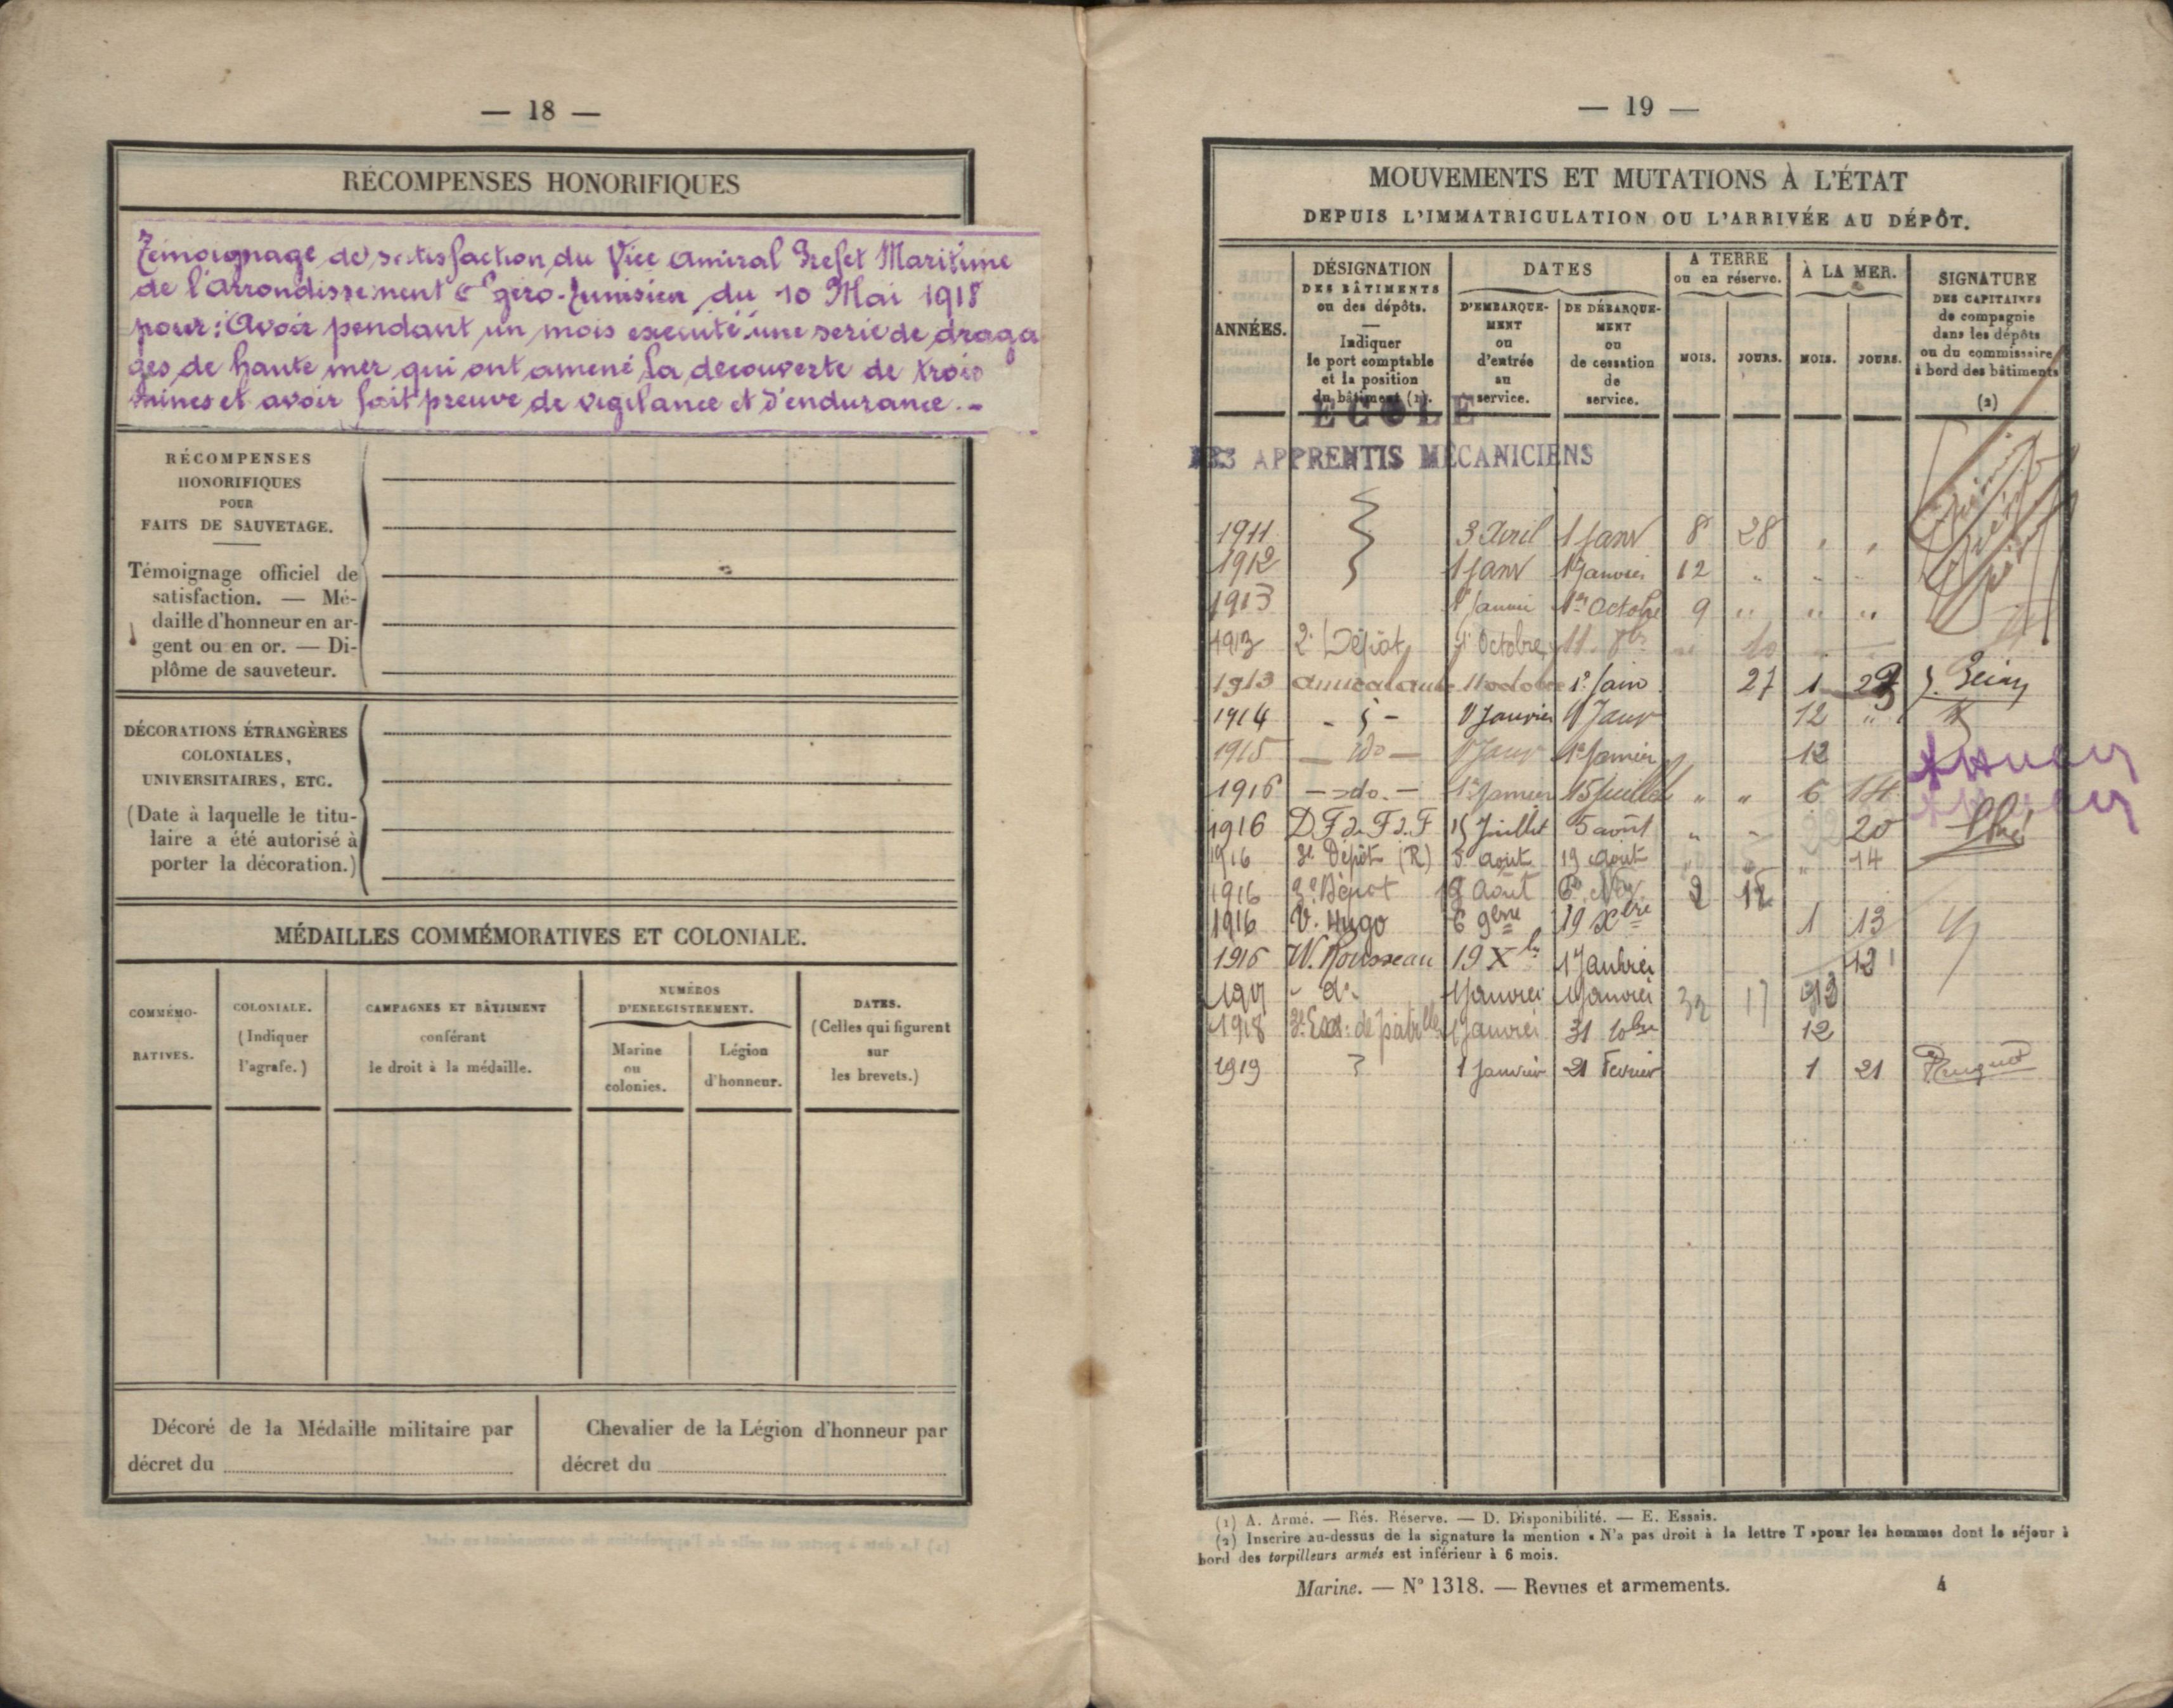 — 18 —
RÉCOMPENSES HONORIFIQUES
Témoignage de satisfaction du Vice Amiral Prefet Maritime
de l'Arrondissement Algero-Tunisien du 10 Mai 1918
pour: Avoir pendant un mois executé une serie de draga
ges de haute mer qui ont amené la decouverte de trois
mines et avoir fait preuve de vigilance et d'endurance.-
RÉCOMPENSES
HONORIFIQUES
POUR
FAITS DE SAUVETAGE.
Témoignage officiel de
satisfaction. — Mé-
daille d'honneur en ar-
gent ou en or. — Di-
plôme de sauveteur.
DÉCORATIONS ÉTRANGÈRES
COLONIALES,
UNIVERSITAIRES, ETC.
(Date à laquelle le titu-
laire a été autorisé à
porter la décoration.)
MÉDAILLES COMMÉMORATIVES ET COLONIALE.
COMMÉMO-
RATIVES.
COLONIALE.
(Indiquer
l'agrafe.)
CAMPAGNES ET BÂTIMENT
conférant
le droit à la médaille.
NUMÉROS
D'ENREGISTREMENT.
Marine
ou
colonies.
Légion
d'honneur.
DATES.
(Celles qui figurent
sur
les brevets.)
Décoré de la Médaille militaire par
décret du
Chevalier de la Légion d'honneur par
décret du
— 19 —
MOUVEMENTS ET MUTATIONS À L'ÉTAT
DEPUIS L'IMMATRICULATION OU L'ARRIVÉE AU DÉPÔT.
ANNÉES.
DÉSIGNATION
DES BÂTIMENTS
ou des dépôts.
—
Indiquer
le port comptable
et la position
du bâtiment (1).
DATES
D'EMBARQUE-
MENT
ou
d'entrée
au
service.
DE DÉBARQUE-
MENT
ou
de cessation
de
service.
A TERRE
ou en réserve.
MOIS. JOURS.
À LA MER.
MOIS. JOURS.
SIGNATURE
DES CAPITAINES
de compagnie
dans les dépôts
ou du commissaire
à bord des bâtiments
(2)
ECOLE
DES APPRENTIS MÉCANICIENS
1911 3 Avril 1 Janv 8 28 " "
1912 1 Janv 1er Janvier 12 " " "
1913 1er Janvier 1er Octobre 9 " " "
1913 2e Dépôt 1er Octobre 11 10
1913 11 octobre 1er Janv 27 1
1914 - 1er Janvier 1er Janv 12 "
1915 — do — 1er Janv 1er Janvier 12
1916 — do. — 1er Janvier 15 Juillet " " 6 14
1916 D.F.d.F.d.F 15 Juillet 5 août " " 20
1916 3e Dépôt (R) 5 Août 19 Août 14
1916 3e Dépôt Août 2
1916 V. Hugo 6 9bre 19 Xbre 1 13
1916 W. Rousseau 19 Xbre 1er Janvier
1917 - do - 1 Janvier 1 Janvier
1918 3e Esc. de patrlles 1 Janvier 31 12
1919 1 Janvier 21 Fevrier 1 21
(1) A. Armé. — Rés. Réserve. — D. Disponibilité. — E. Essais.
(2) Inscrire au-dessus de la signature la mention « N'a pas droit à la lettre T » pour les hommes dont le séjour à
bord des torpilleurs armés est inférieur à 6 mois.
Marine. — N° 1318. — Revues et armements. 4